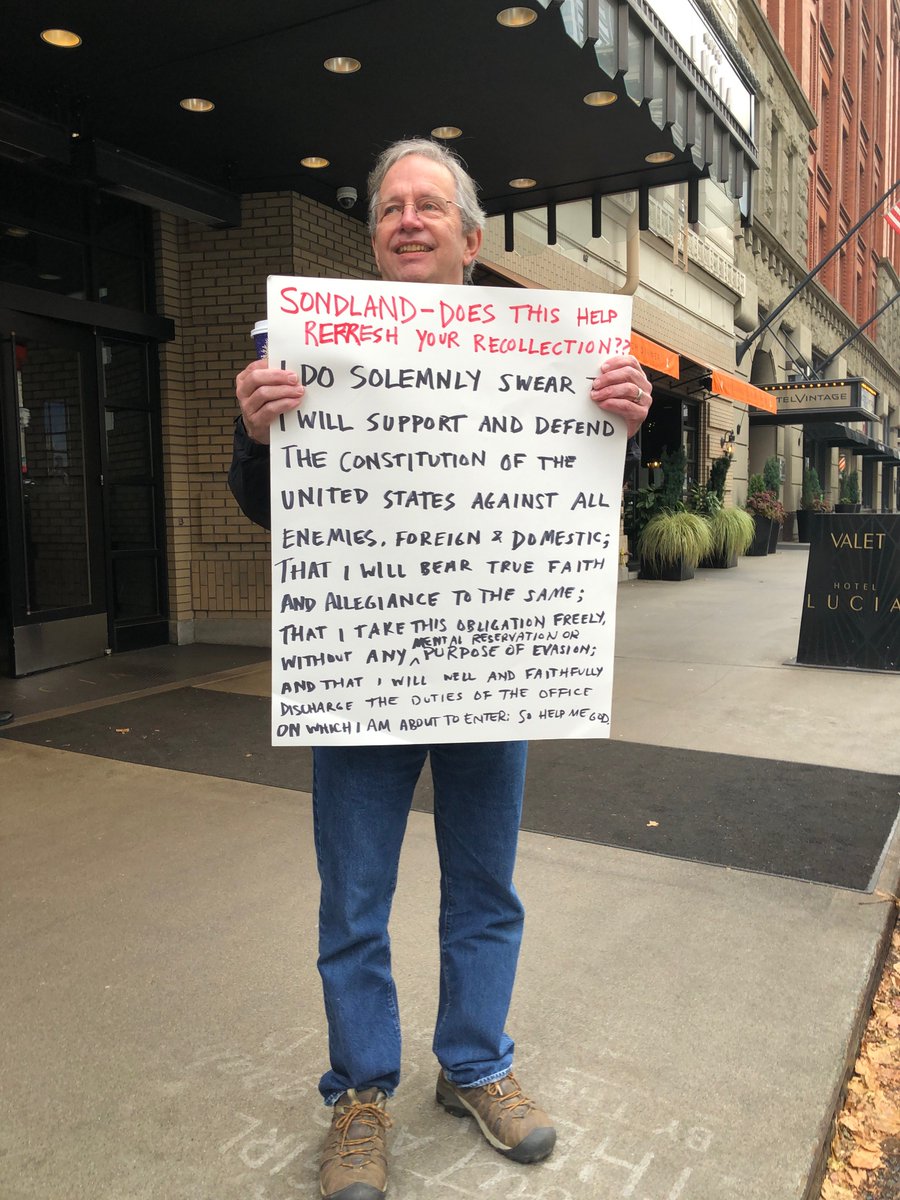 LUCIA
SONDLAND-DOES THIS HELP
REFRESH YOUR RECOLLECTION??
I DO SOLEMNLY SWEAR
I WILL SUPPORT AND DEFEND
THE CONSTITUTION OF THE
UNITED STATES AGAINST ALL
ENEMIES, FOREIGN & DOMESTIC;
THAT I WILL BEAR TRUE FAITH
AND ALLEGIANCE TO THE SAME;
THAT I TAKE THIS OBLIGATION FREELY,
MENTAL RESERVATION OR
WITHOUT ANY ^ PURPOSE OF EVASION;
AND THAT I WILL WELL AND FAITHFULLY
DISCHARGE THE DUTIES OF THE OFFICE
ON WHICH I AM ABOUT TO ENTER: SO HELP ME GOD.
TELVINTAGE
VALET
HOTEL
LUCIA